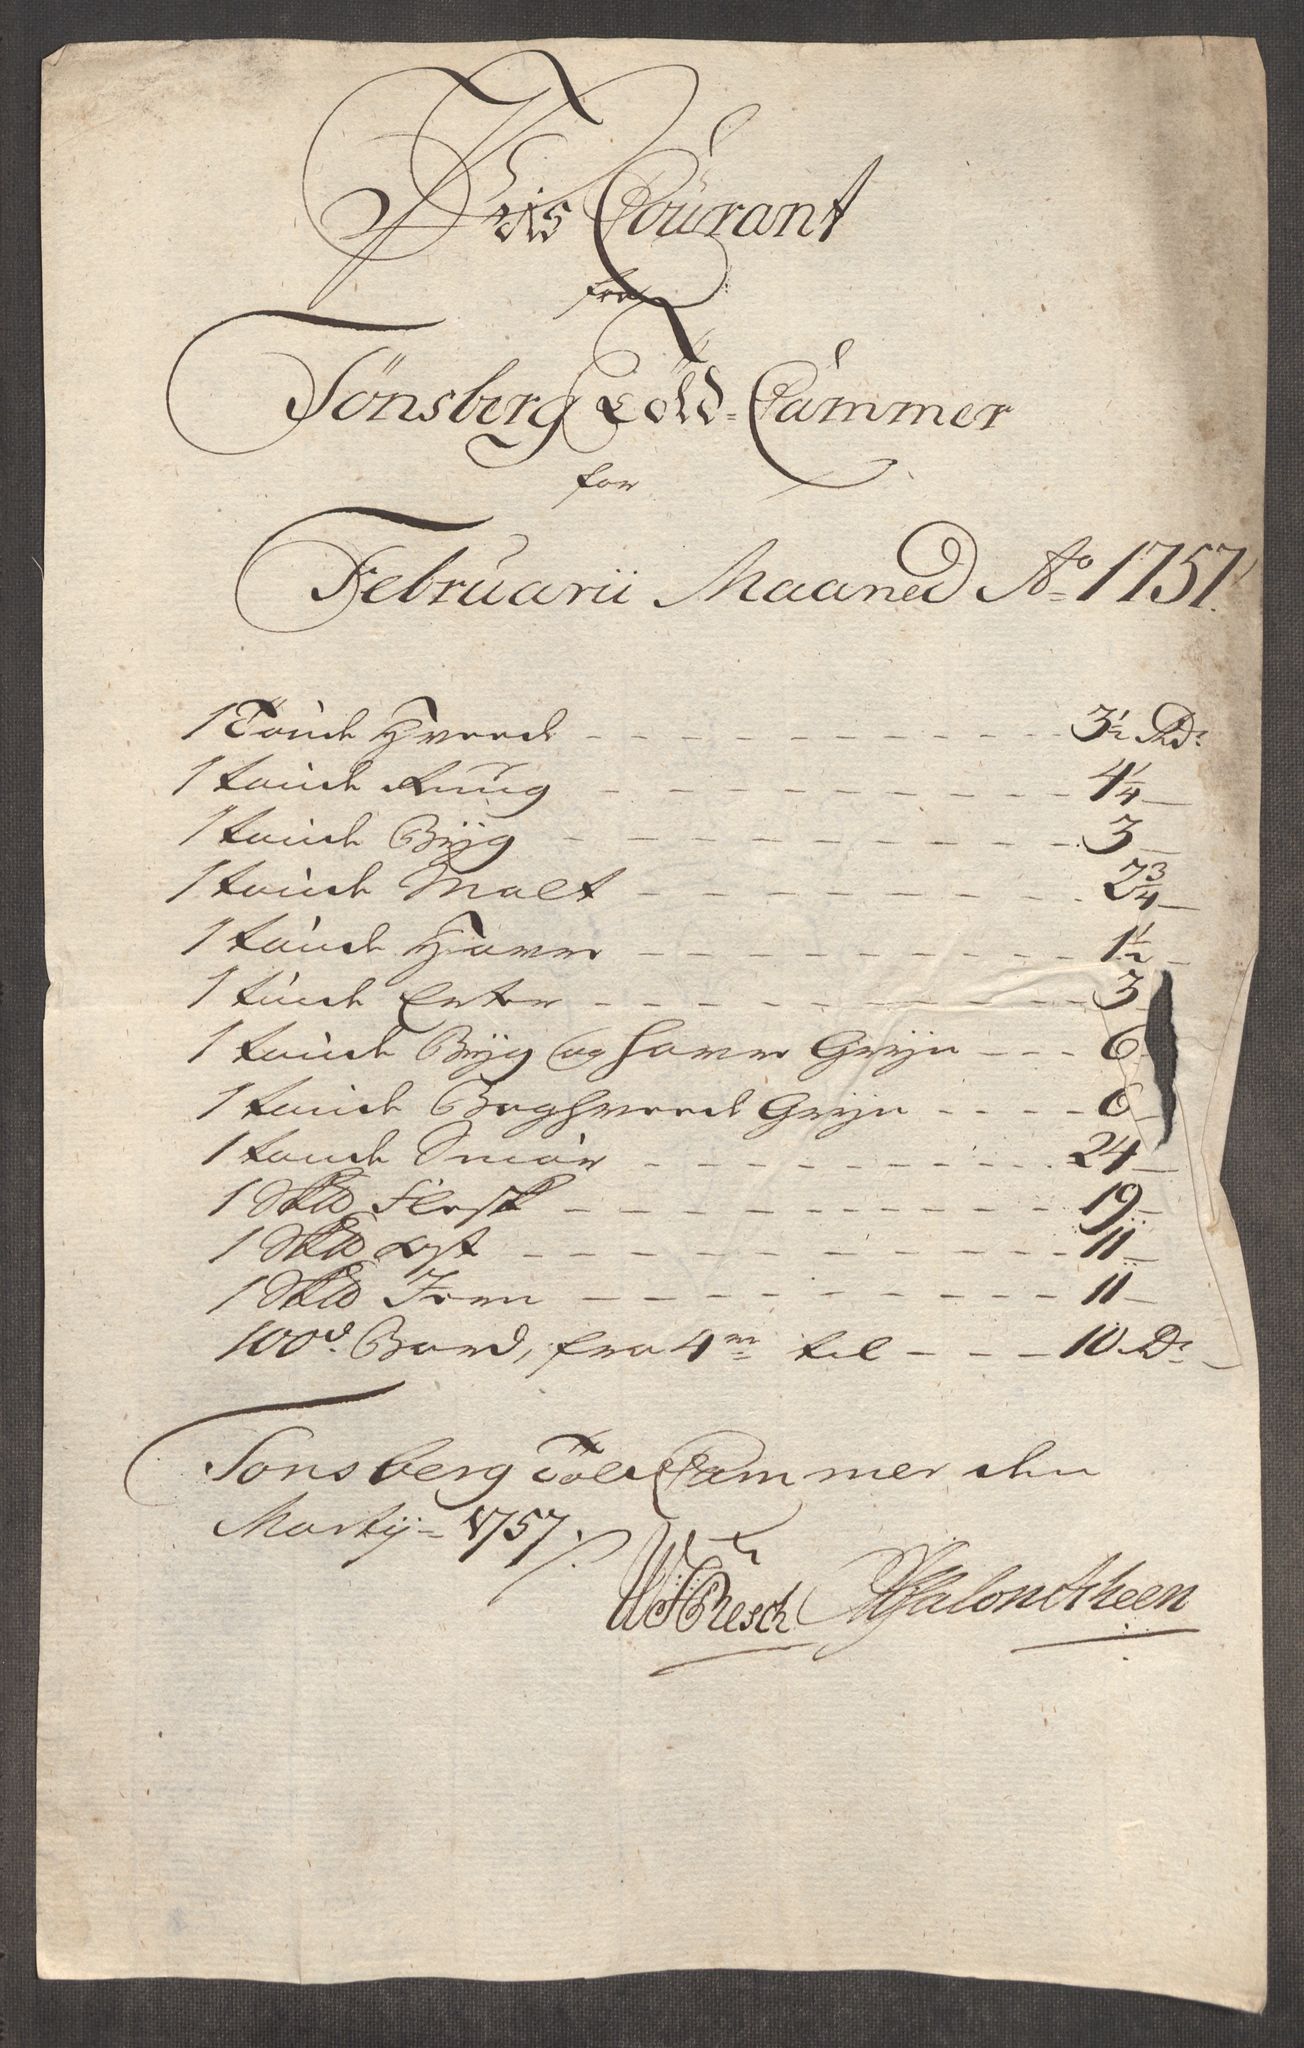 Pris Courant
fra
Tönsberg Töld-Cammer
for
Februarii Maaned Ao 1757.
1 Tönde Hveede - - - 3 1/2 Rdr
1 tönde Rüug - - - 4 1/4 -
1 tönde Byg - - - 3 -
1 tönde Malt - - - 2 3/4 -
1 tönde Havre - - - 1 1/2 -
1 tönde Erter - - - 3
1 tönde Byg og Havre Gryn - - - 6
1 tönde Boghveede Gryn - - - 6
1 tönde Smör - - - 24 -
1 Skd Flesk - - - 19 -
1 Skd Ost - - - 11 -
1 Skd Jern - - - 11 -
100d Bord, fra 4re til - - - 10 Dr
Tonsberg Told Cammer den
Martij 1757.
Resch